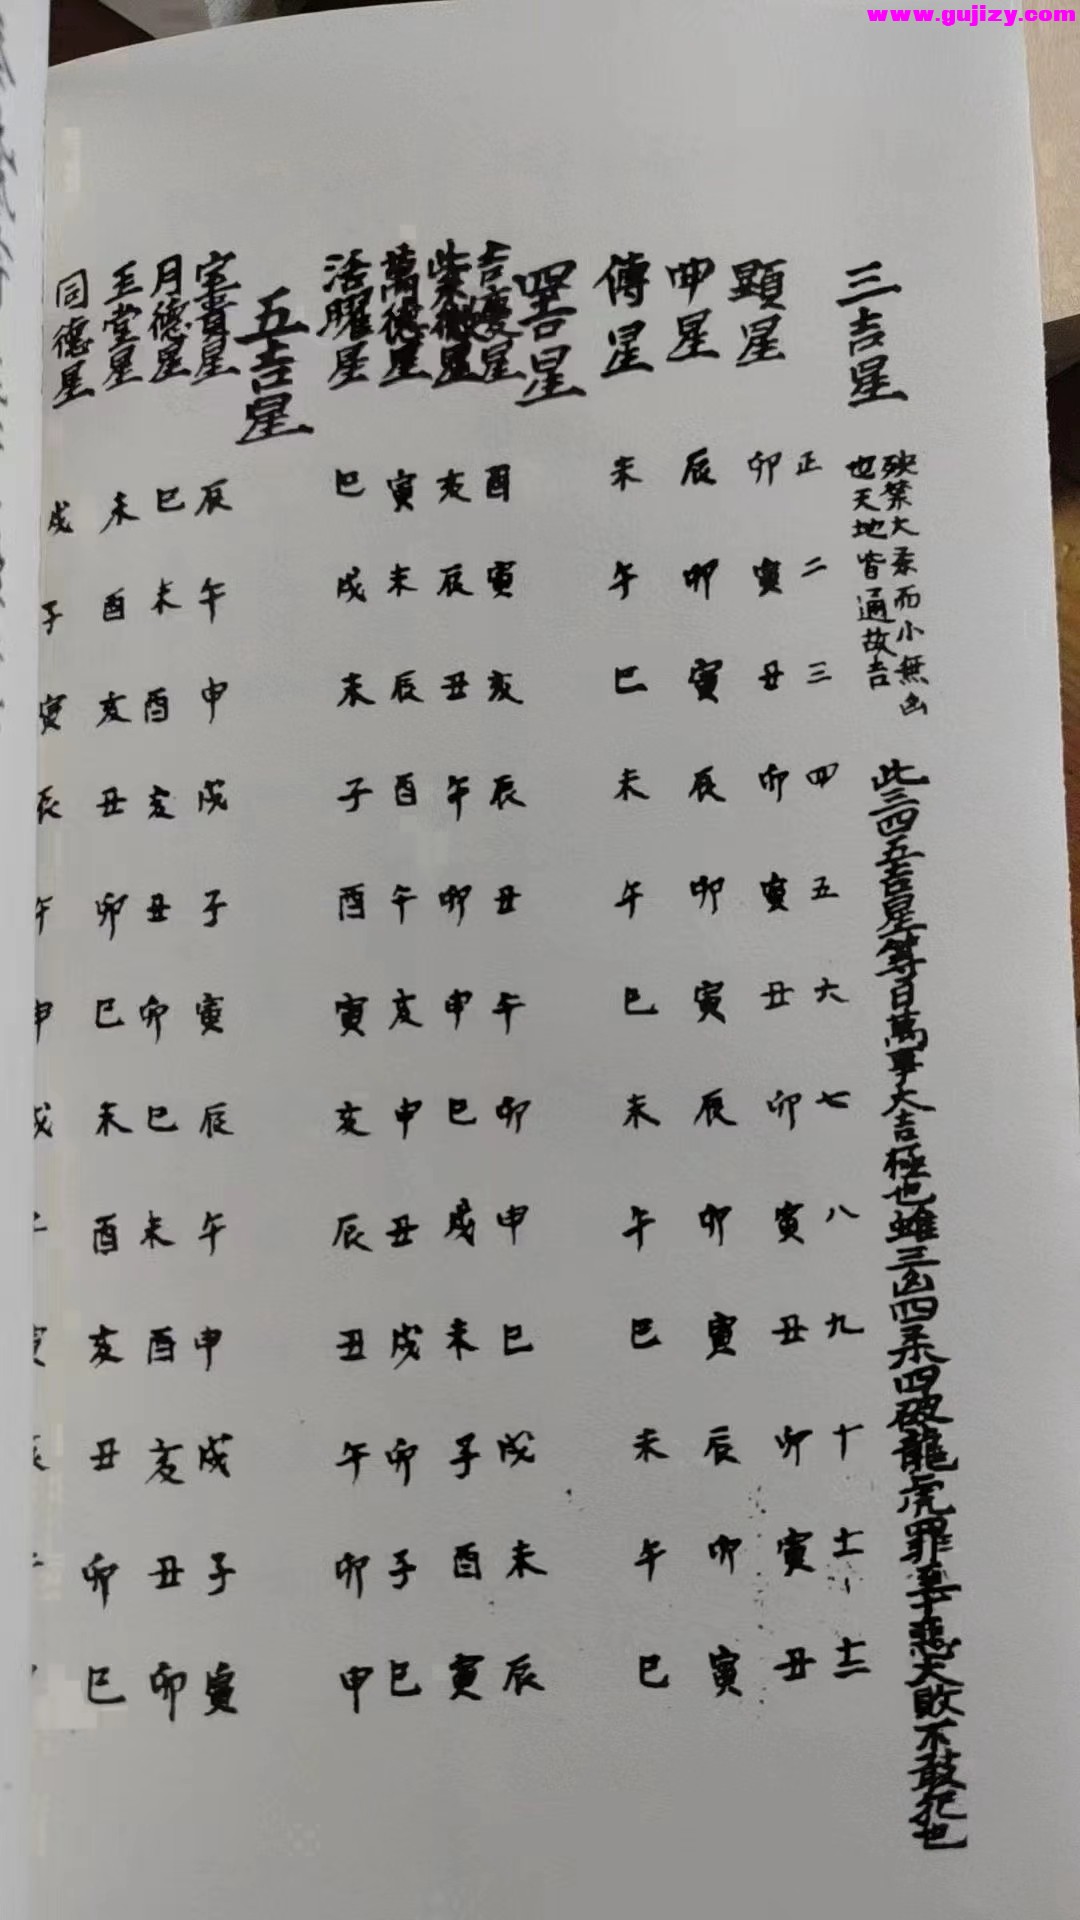 www.gujizy.com
三吉星
殃禁大柔而小無凶
也天地皆通故吉
此三四五吉星等日萬事大吉極也雖三凶四柔四破龍虎罪至十惡大敗不敢犯也
正 二 三 四 五 六 七 八 九 十 十一 十二
顯星 卯 寅 丑 卯 寅 丑 卯 寅 丑 卯 寅 丑
曲星 辰 卯 寅 辰 卯 寅 辰 卯 寅 辰 卯 寅
傳星 未 午 巳 未 午 巳 未 午 巳 未 午 巳
四吉星
吉慶星 酉 寅 亥 辰 丑 午 卯 申 巳 戌 未 辰
紫微星 亥 辰 丑 午 卯 申 巳 戌 未 子 酉 寅
萬德星 寅 未 辰 酉 午 亥 申 丑 戌 卯 子 巳
活曜星 巳 戌 未 子 酉 寅 亥 辰 丑 午 卯 申
五吉星
星 辰 午 申 戌 子 寅 辰 午 申 戌 子 寅
月德星 巳 未 酉 亥 丑 卯 巳 未 酉 亥 丑 卯
玉堂星 未 酉 亥 丑 卯 巳 未 酉 亥 丑 卯 巳
同德星 戌 子 寅 辰 午 申 戌